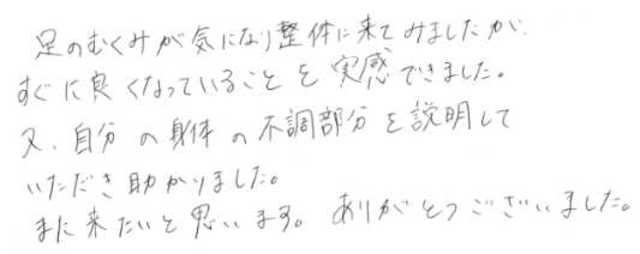 足のむくみが気になり整体に来てみましたが、
すぐに良くなっていることを実感できました。
又、自分の身体の不調部分を説明して
いただき助かりました。
また来たいと思います。ありがとうございました。